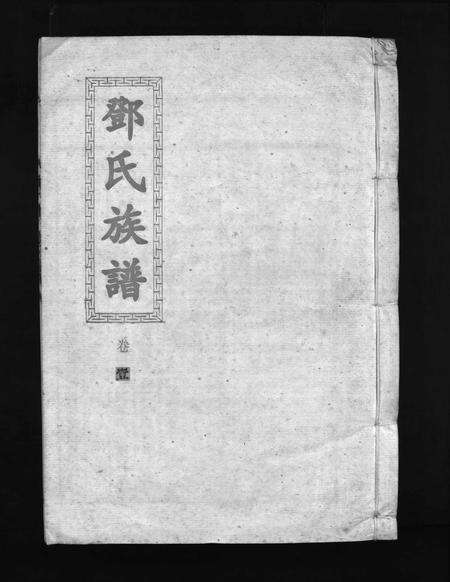 鄧氏族譜
卷
壹